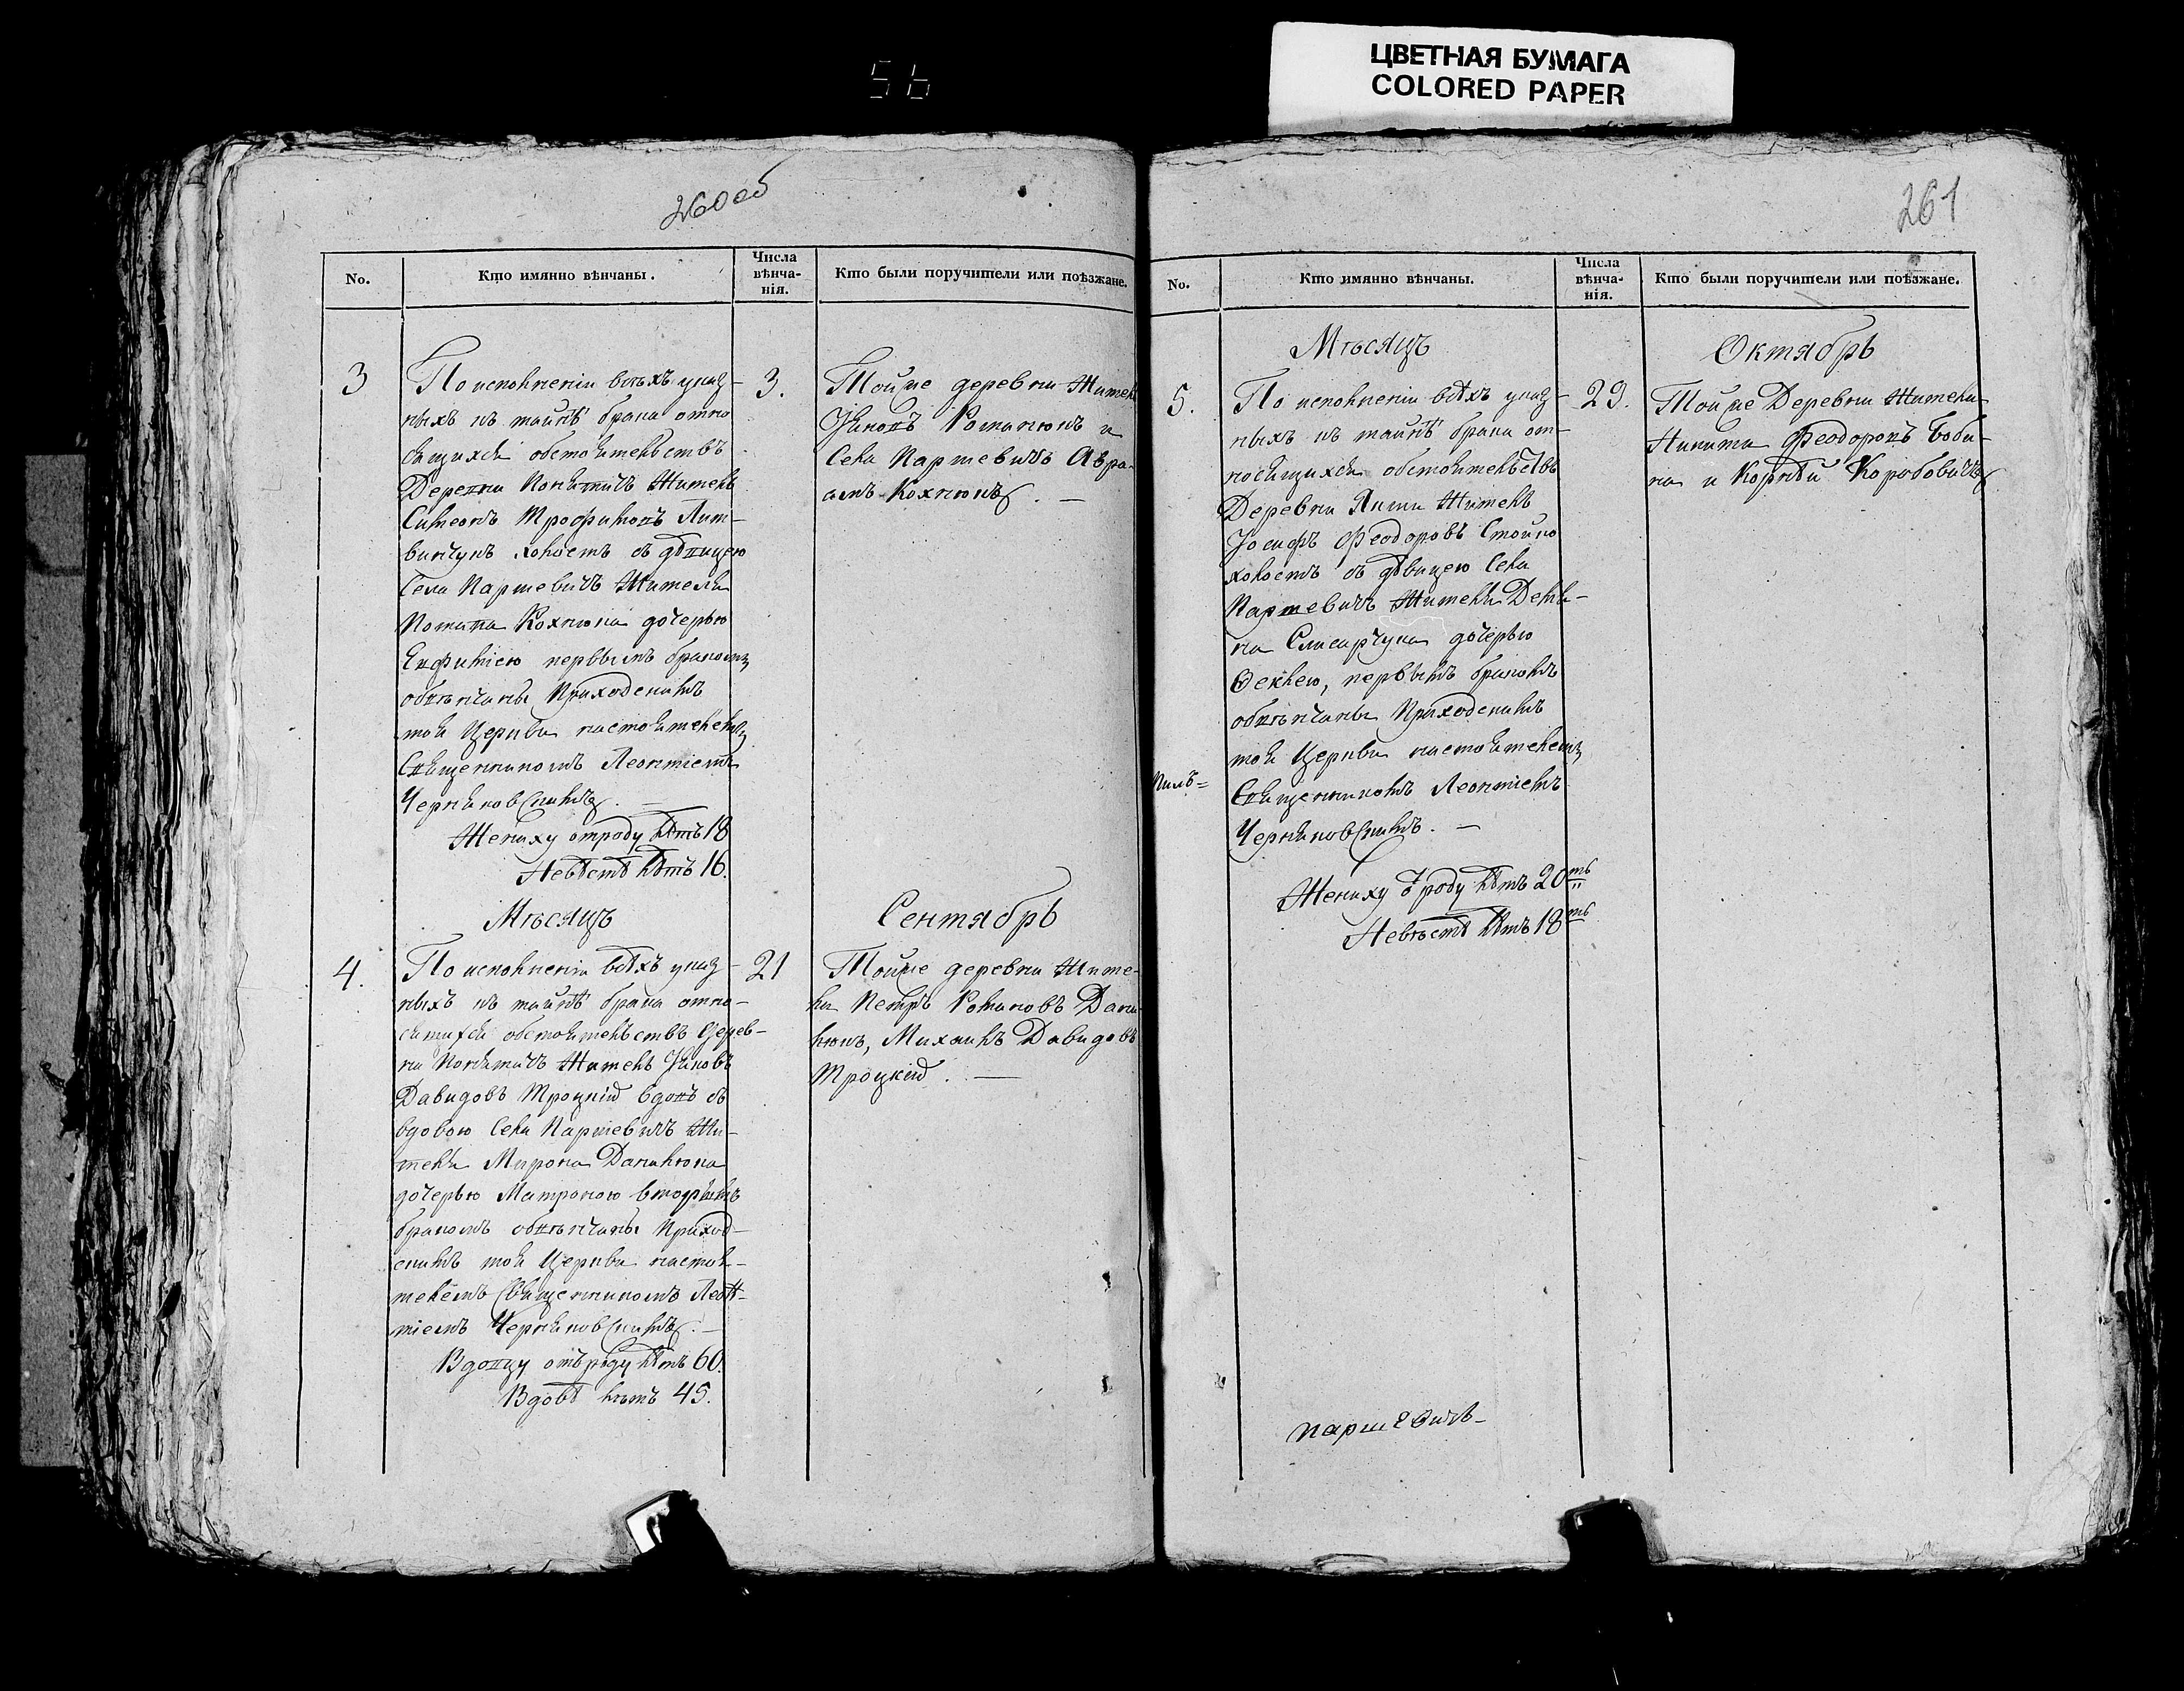 ЦВЕТНАЯ БУМАГА
COLORED PAPER
56
260 об
No.
Кто имянно вѣнчаны.
Числа
вѣнча-
нія.
Кто были поручители или поѣзжане.
3
По исполненіи всѣхъ указ-
ныхъ къ тайнѣ брака отно
сящихся обстоятельствъ
Деревни Житель
Симеонъ Трофимовъ Лит-
винчукъ холостъ съ дѣвицею
Села Паршевичъ Жителя
Потапа Кохнюка дочерью
Евфиміею первымъ бракомъ
обвѣнчаны Приходскимъ
тоя Церкви настоятелемъ
Священникомъ Леонтіемъ
Черняковскимъ. —
Жениху отроду лѣтъ 18
Невѣстѣ лѣтъ 16.
3.
Тойже деревни Жители
Яковъ Романюкъ и
Села Паршевичъ Авра-
амъ Кохнюкъ. —
Мѣсяцъ
Сентябрь
4.
По исполненіи всѣхъ указ-
ныхъ къ тайнѣ брака отно-
сящихся обстоятельствъ Дерев-
ни Житель Яковъ
Давидовъ Троцкій вдовъ съ
вдовою Села Паршевичъ Жи-
теля Мирона Данилюка
дочерью Матроною вторымъ
бракомъ обвѣнчаны Приход-
скимъ тоя Церкви настоя-
телемъ Священникомъ Леон-
тіемъ Черняковскимъ. —
Вдовцу отъроду лѣтъ 60.
Вдовѣ лѣтъ 45.
21
Тойже деревни Жите-
ли Петръ Романовъ Дани-
люкъ, Михаилъ Давидовъ
Троцкій. —
261
No.
Кто имянно вѣнчаны.
Числа
вѣнча-
нія.
Кто были поручители или поѣзжане.
Мѣсяцъ
Октябрь
5.
По исполненіи всѣхъ указ-
ныхъ къ тайнѣ брака от-
носящихся обстоятельствъ
Деревни Житель
Іосифъ Феодоровъ Стойко
холостъ съ дѣвицею Села
Паршевичъ Жителя Демья-
на Слисарчука дочерью
Ѳеклею, первымъ бракомъ
обвѣнчаны Приходскимъ
тоя Церкви настоятелемъ
Священникомъ Леонтіемъ
Черняковскимъ. —
Жениху ѿ роду лѣтъ 20ть
Невѣстѣ лѣтъ 18ть
29.
Тойже Деревни Жители
Никита Феодоровъ Боби-
ка и Корнѣй Коробовичъ
паршевичъ-